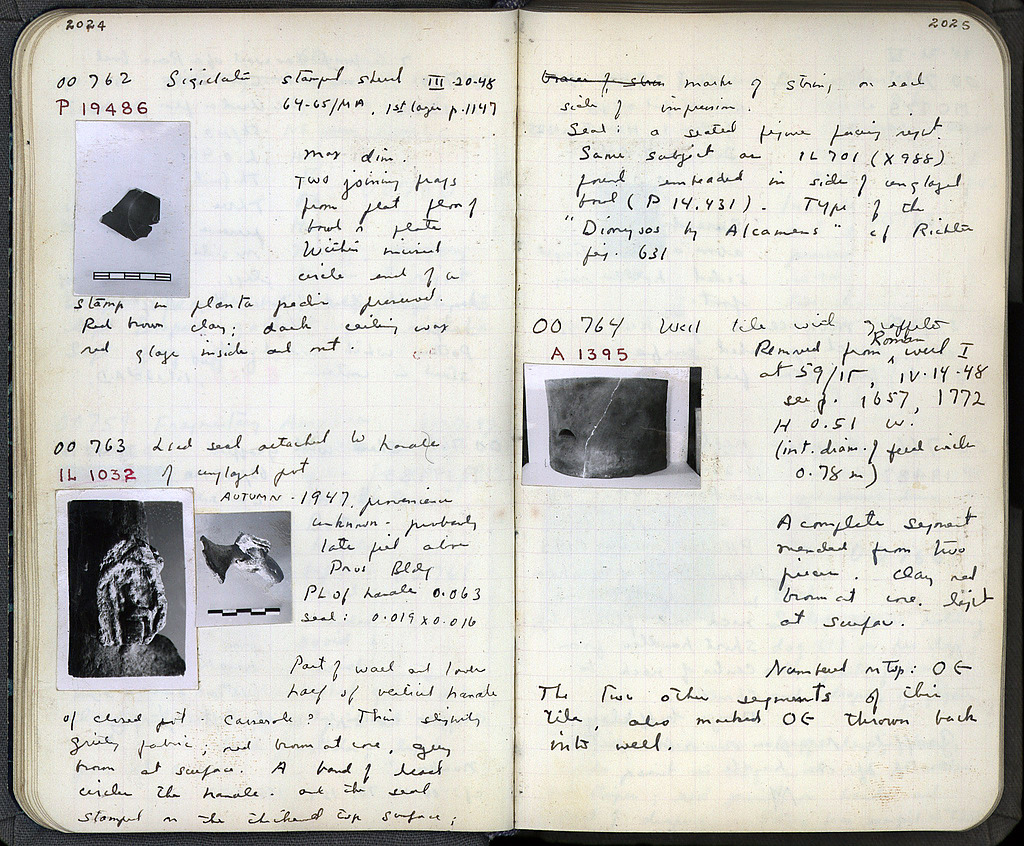 2024
OO 762 Sigillata stamped sherd III 20-48
P 19486 64-65/MA, 1st layer p. 1147
max dim.
Two joining frags
from flat floor of
bowl or plate
Within incised
circle end of a
stamp in planta pedis preserved.
Red brown clay; dark sealing wax
red glaze inside and out.
OO 763 Lead seal attached to handle
IL 1032 of unglazed pot
AUTUMN - 1947. provenience
unknown - probably
late fill above
Pros Bldg
PL of handle 0.063
seal: 0.019 x 0.016
Part of wall and lower
half of vertical handle
of closed pot - casserole? Thin slightly
gritty fabric; red brown at core, grey
brown at surface. A band of lead
circles the handle and the seal
stamped on the thickened top surface;
2025
marks of string on each
side of impression.
Seal: a seated figure facing right
Same subject as IL 701 (X 988)
found embedded in side of unglazed
bowl (P 14.431). Type of the
"Dionysos by Alcamenes" cf Richter
fig. 631
OO 764 Well tile with graffito
A 1395 Removed from Roman well I
at 59/ΙΕ, IV-14-48
see p. 1657, 1772
H 0.51 W.
(int. diam. of full circle
0.78 m)
A complete segment
mended from two
pieces. Clay red
brown at core. light
at surface.
Numbered on top: OE
The two other segments of this
tile, also marked OE thrown back
into well.